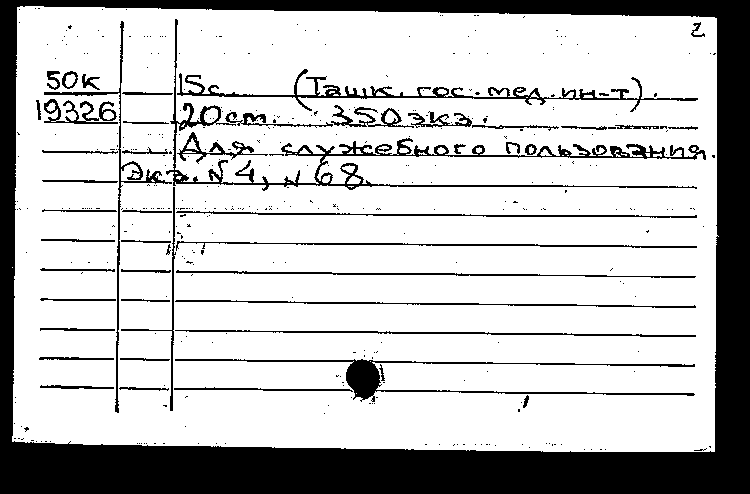 2
50К 15с. (Ташк. гос. мед. ин-т).
19326 20см. 350 экз.
Для служебного пользования.
Экз. №4, №68.